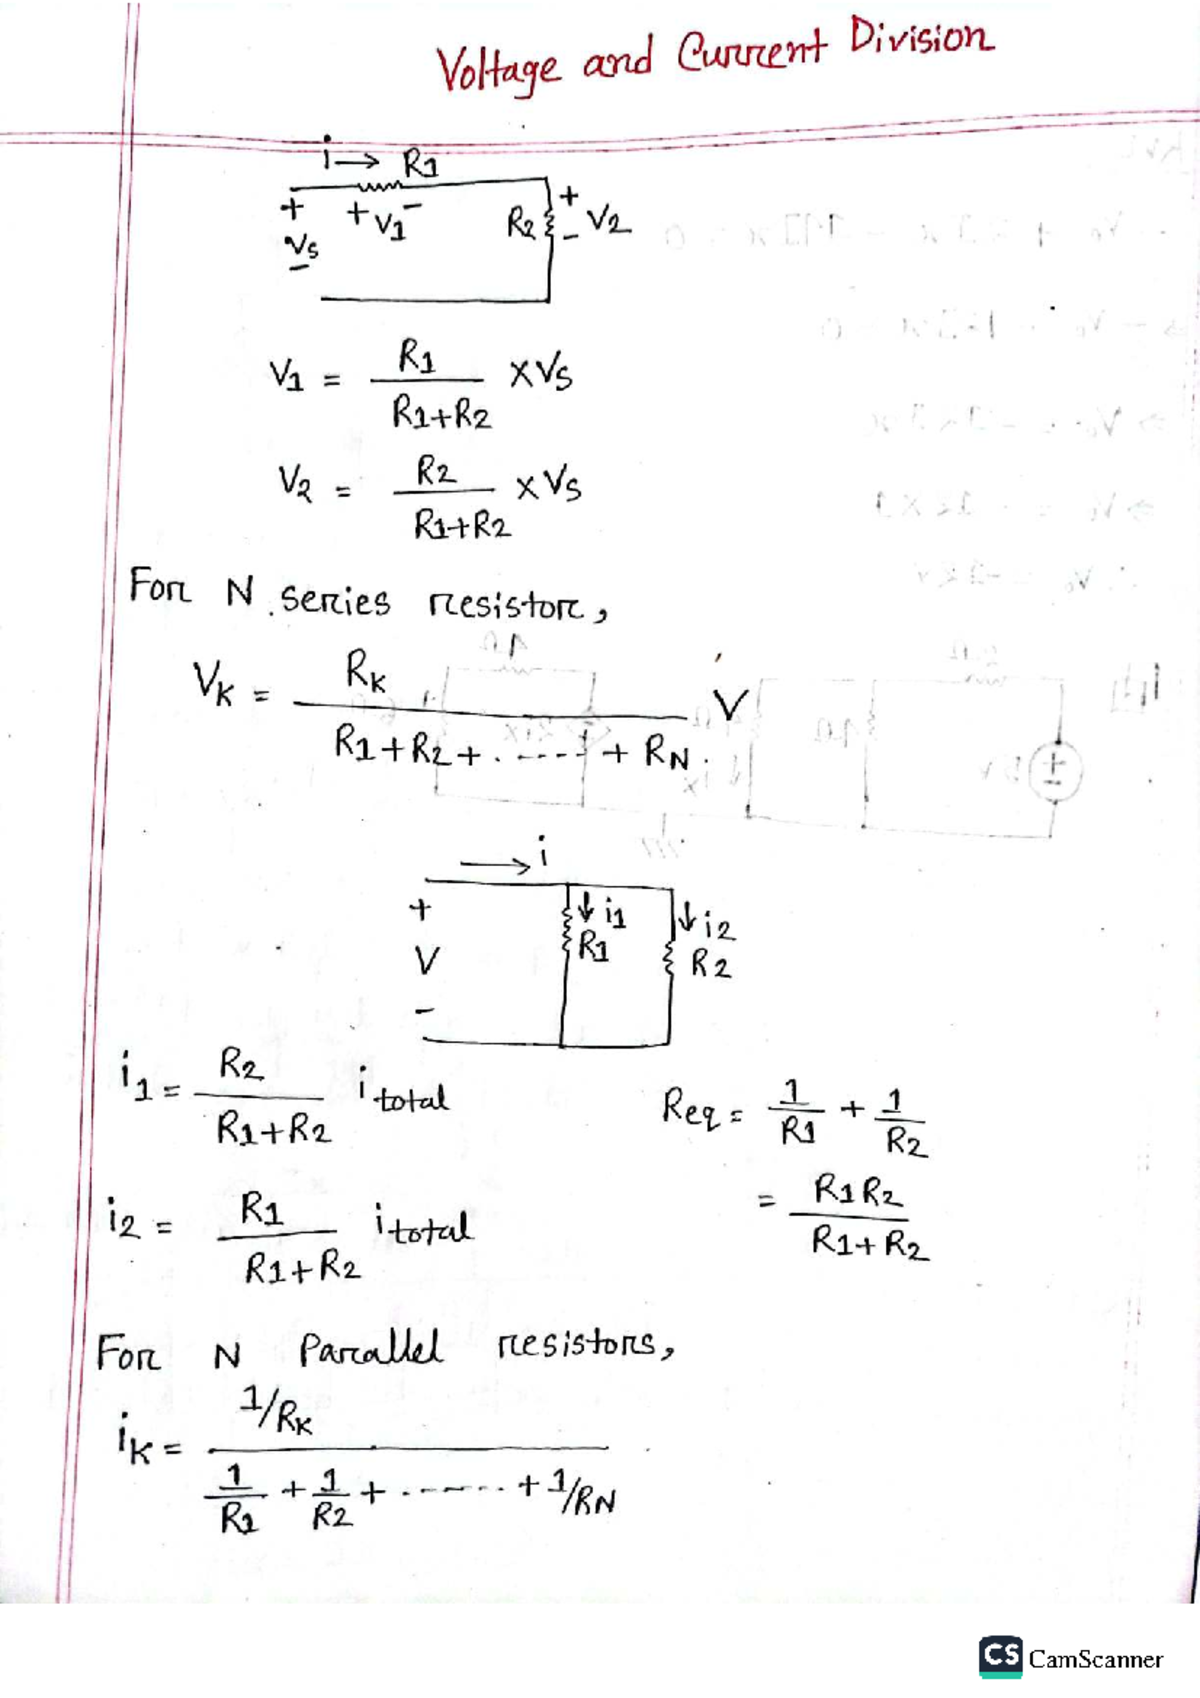 Voltage and Current Division
i → R1
+ + V1 - R2 + V2
Vs -
-
V1 = R1 / R1+R2 × Vs
V2 = R2 / R1+R2 × Vs
For N series resistor,
VK = RK / R1+R2+ ...... + RN V
→ i
+ ↓ i1 ↓ i2
V R1 R2
-
i1 = R2 / R1+R2 i total
Req = 1/R1 + 1/R2
= R1R2 / R1+R2
i2 = R1 / R1+R2 i total
For N Parallel resistors,
iK = 1/RK / 1/R1 + 1/R2 + ...... + 1/RN
CS CamScanner